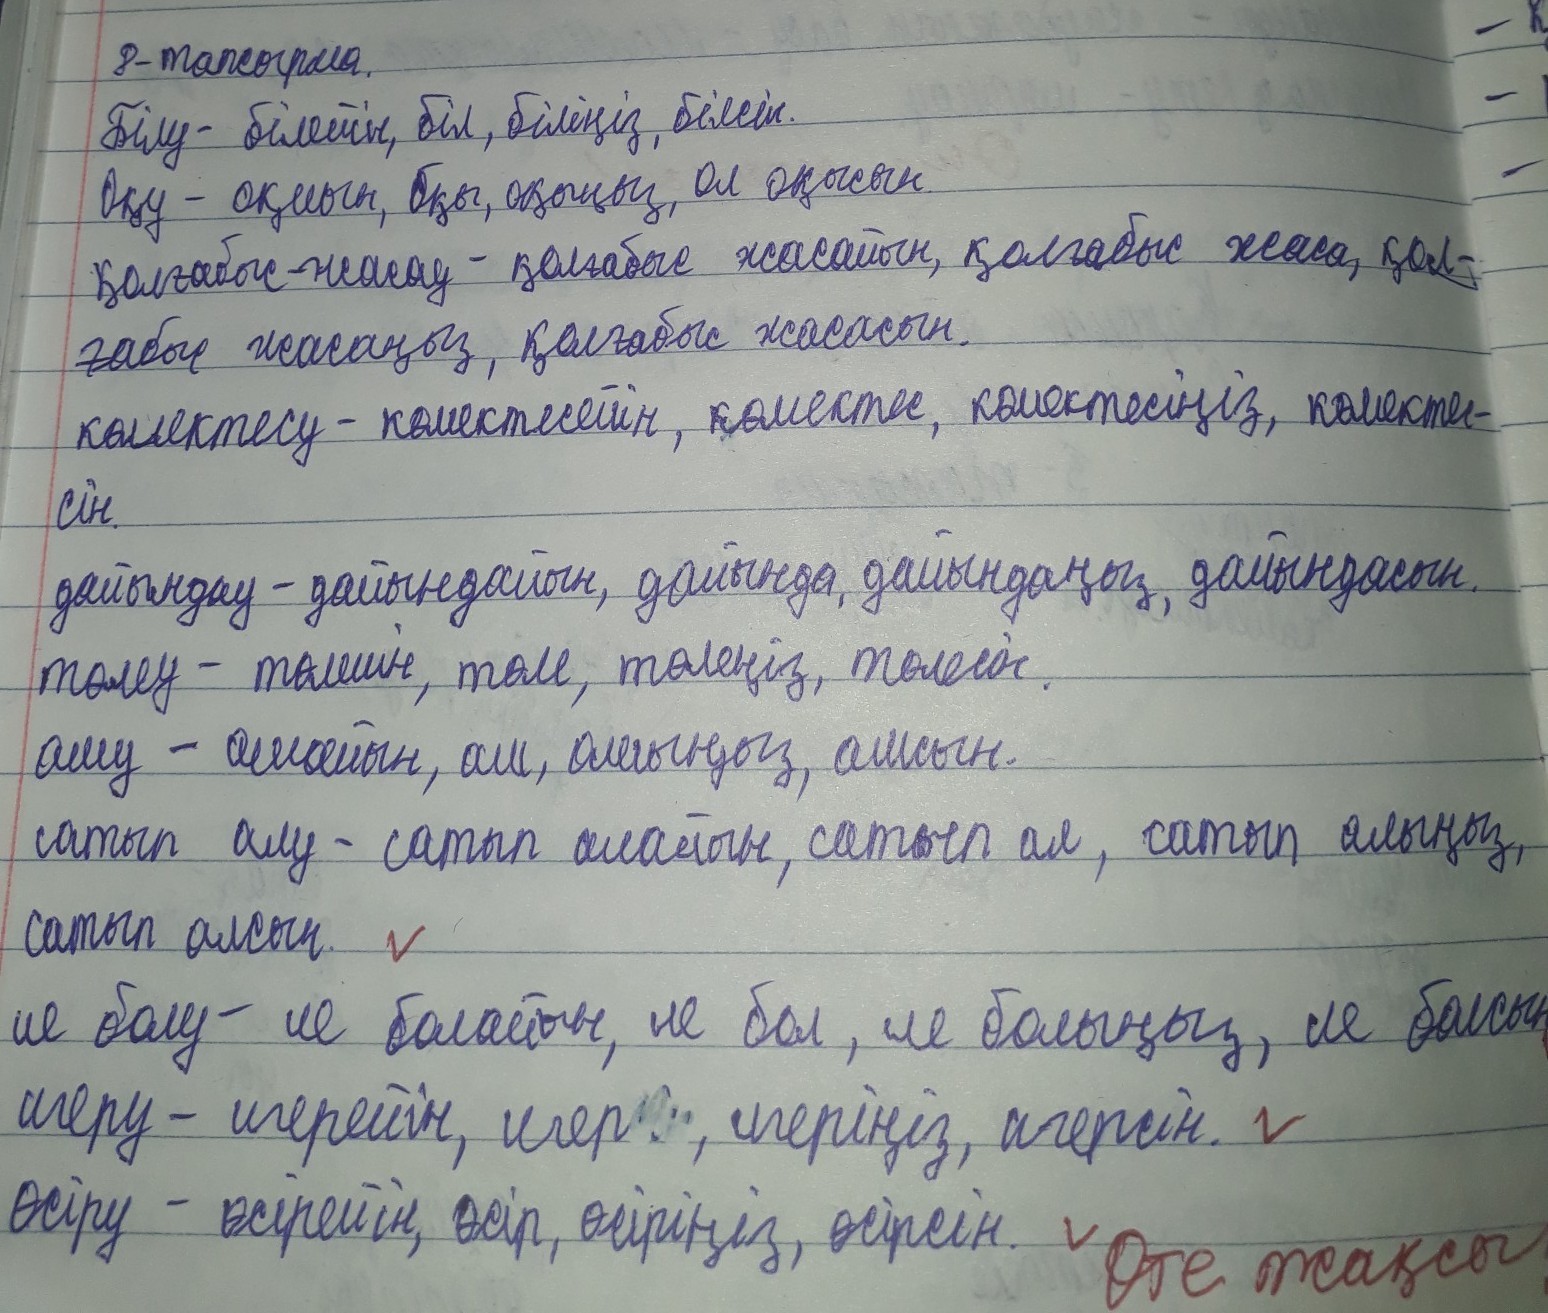 8-тапсырма.
Білу - білейін, біл, біліңіз, білсін.
Оқу - оқиын, Оқы, оқыңыз, ол оқысын
қолғабыс-жасау - қолғабыс жасайын, қолғабыс жаса, қол-
ғабыс жасаңыз, қолғабыс жасасын.
көмектесу - көмектесейін, көмектес, көмектесіңіз, көмектес-
сін.
дайындау - дайындайын, дайында, дайындаңыз, дайындасын.
төлеу - төлейін, төле, төлеңіз, төлесін.
ашу - ашайын, аш, ашыңыз, ашсын.
сатып алу - сатып алайын, сатып ал, сатып алыңыз,
сатып алсын.
ие болу - ие болайын, ие бол, ие болыңыз, ие болсын
игеру - игерейін, игер, игеріңіз, игерсін.
өсіру - өсірейін, өсір, өсіріңіз, өсірсін.
Өте жақсы